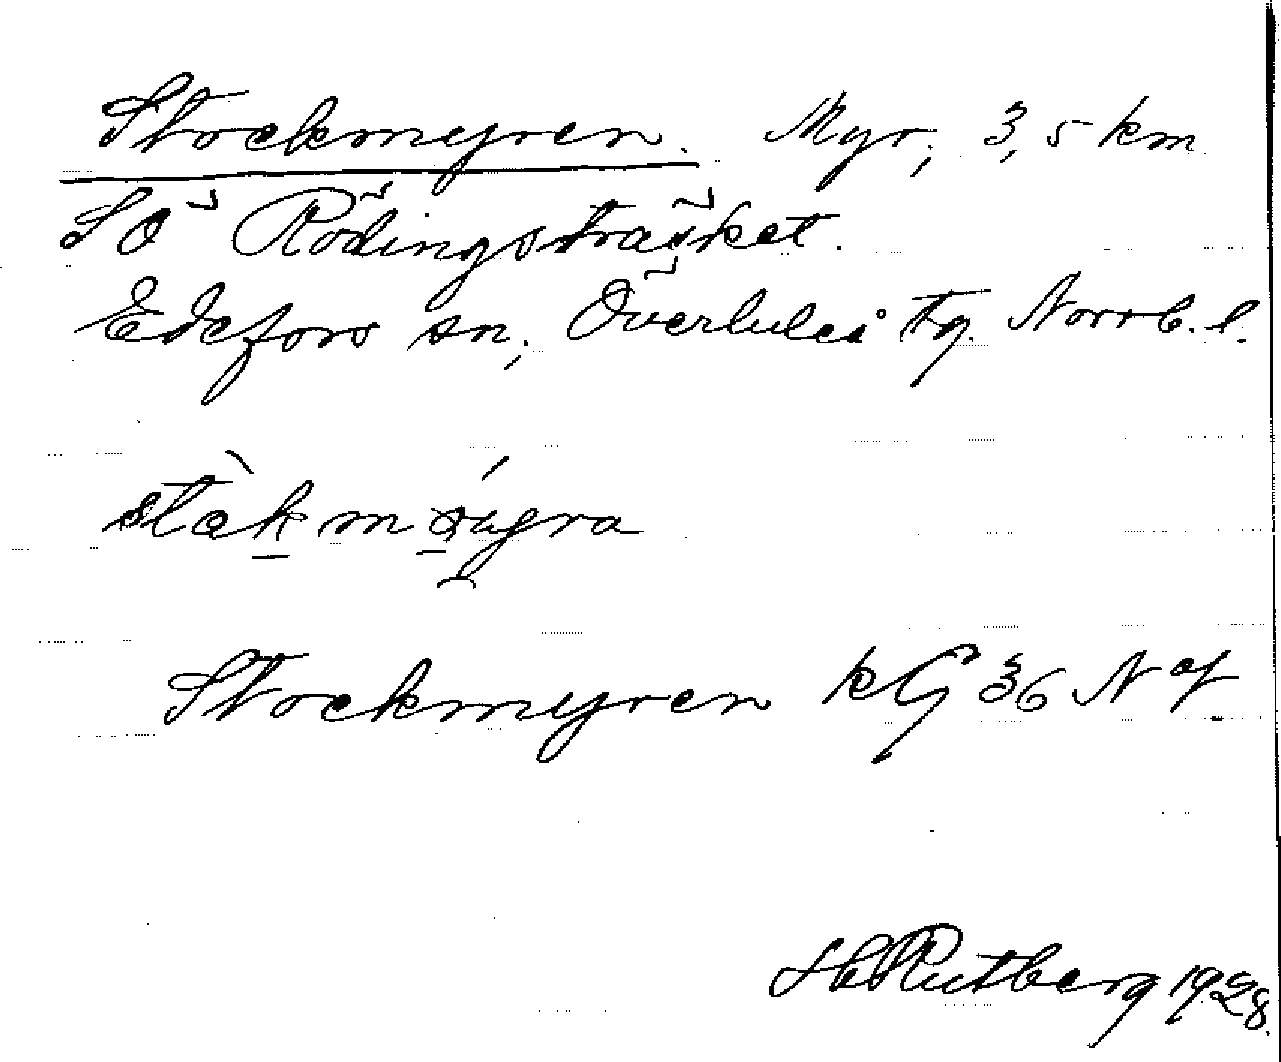 Stockmyren. Myr, 3,5 km
SÖ Rödingsträsket.
Edefors sn, Överluleå tg. Norrb. l.
Stockmyren kG 36 N
Rutberg 1928.